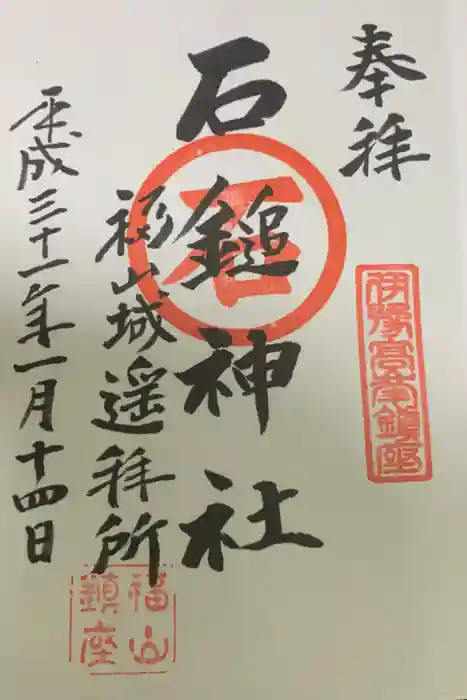 奉拝
伊豫高峯鎮座
石鎚神社
石
福山城遥拝所
福山鎮座
平成三十一年一月十四日